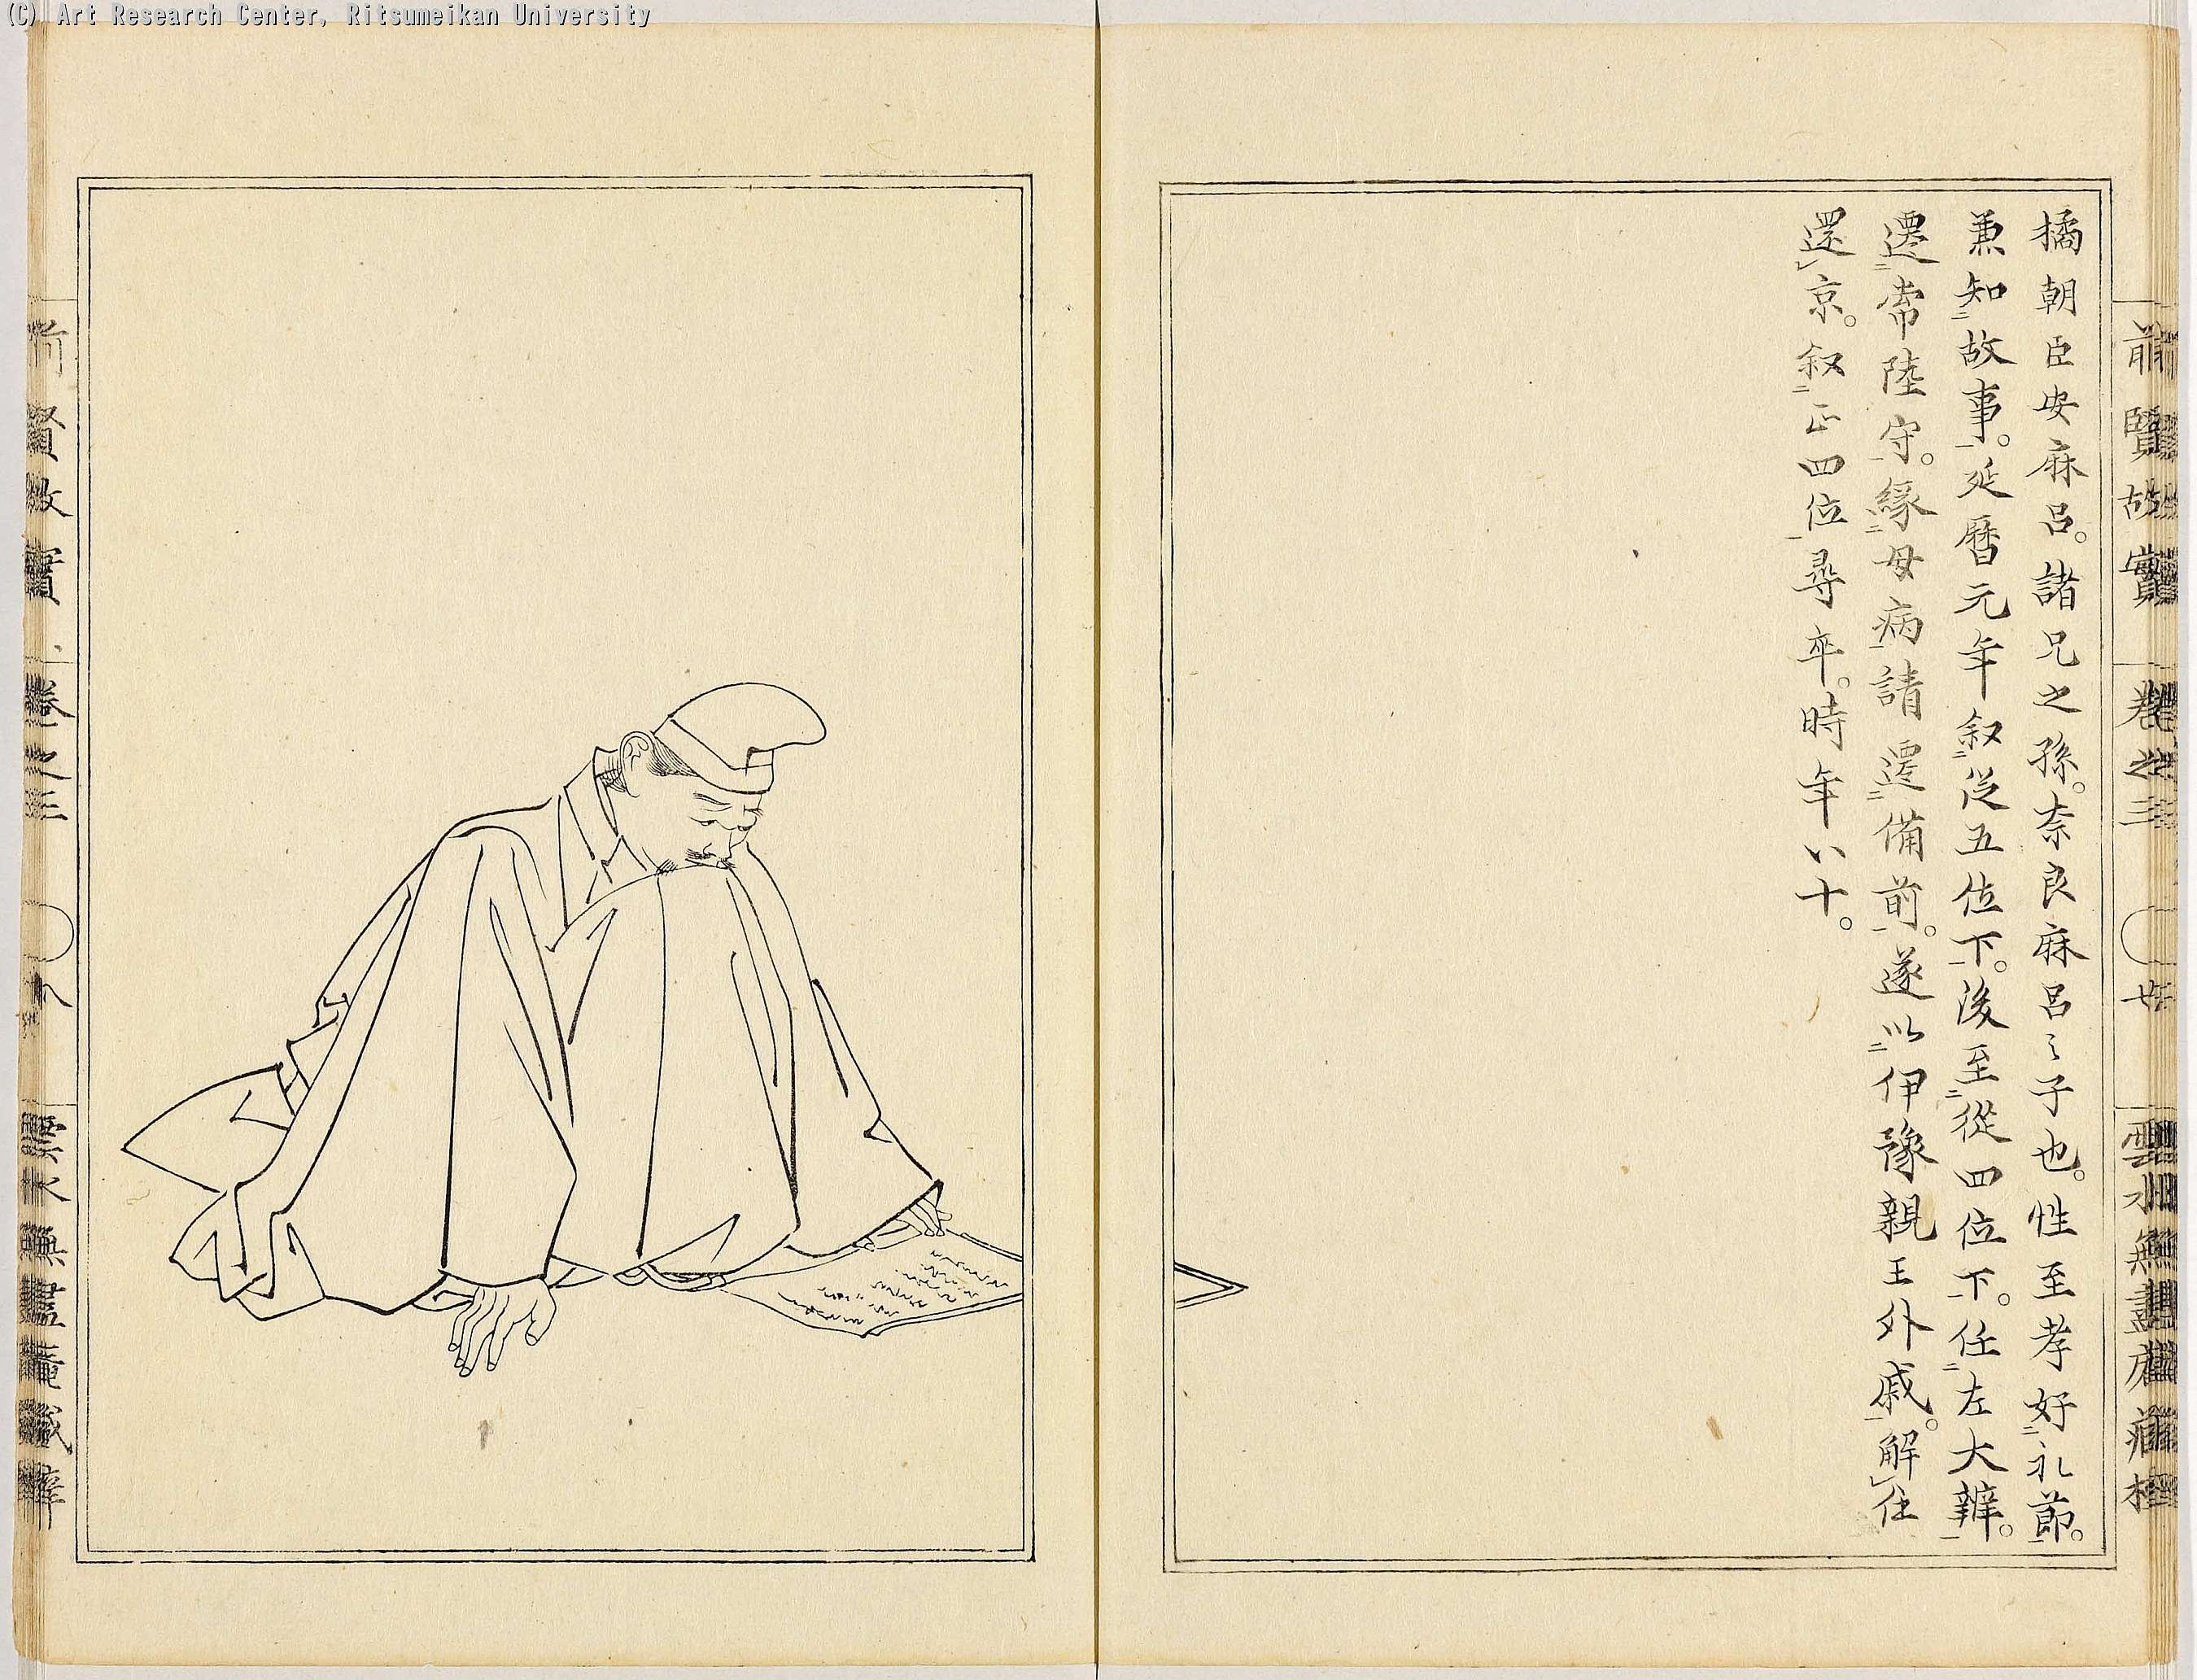 (C) Art Research Center, Ritsumeikan University
前賢故實 卷之三 〇 廿 雲水無盡庵藏梓
橘朝臣安麻呂。諸兄之孫。奈良麻呂之子也。性至孝好礼節。
兼知故事。延暦元年叙從五位下。後至從四位下。任左大辨。
遷常陸守。緣母病請遷備前。遂以伊豫親王外戚。解任
還京。叙正四位尋卒。時年八十。
前賢故實 卷之三 〇 雲水無盡庵藏梓